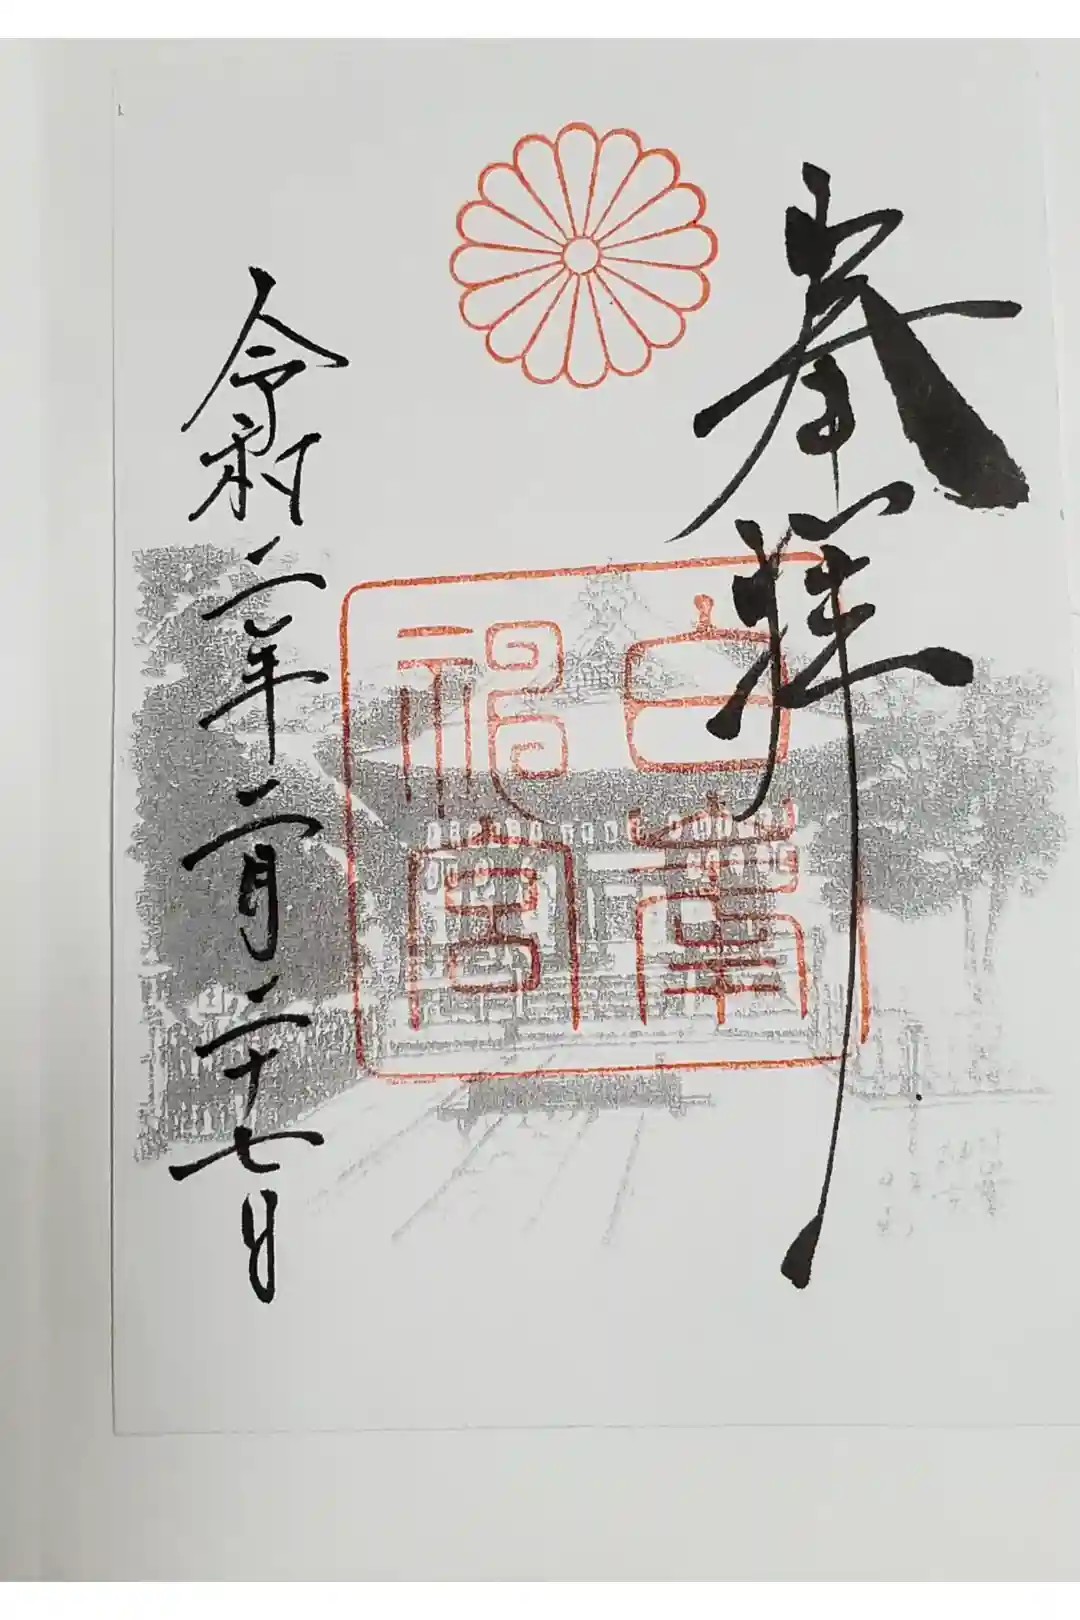 奉拝
白峯
神宮
令和二年二月二十七日